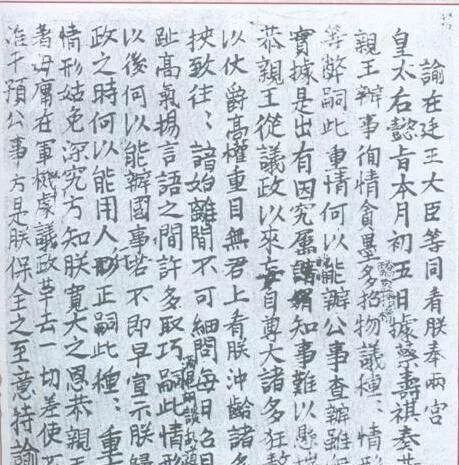 諭在廷王大臣等同看朕奉兩宮
皇太后懿旨本月初五日據蔡壽祺奏恭
親王辦事徇情貪墨多招物議種:情形
等弊嗣此重情何以能辦公事查辦雖
實據是出有因究屬曖昧知事難以懸揣
恭親王從議政以來妄自尊大諸多狂敖
以仗爵高權重目無君上看朕沖齡諸多
挾致往:諳始離間不可細問每日召見
趾高氣揚言語之間許多取巧嗣此情形
以後何以能辦國事若不即早宣示朕歸
政之時何以能用人行正嗣此種:重大
情形姑免深究方知朕寬大之恩恭親王
著毋庸在軍機處議政革去一切差使不
准干預公事方是朕保全之至意特諭